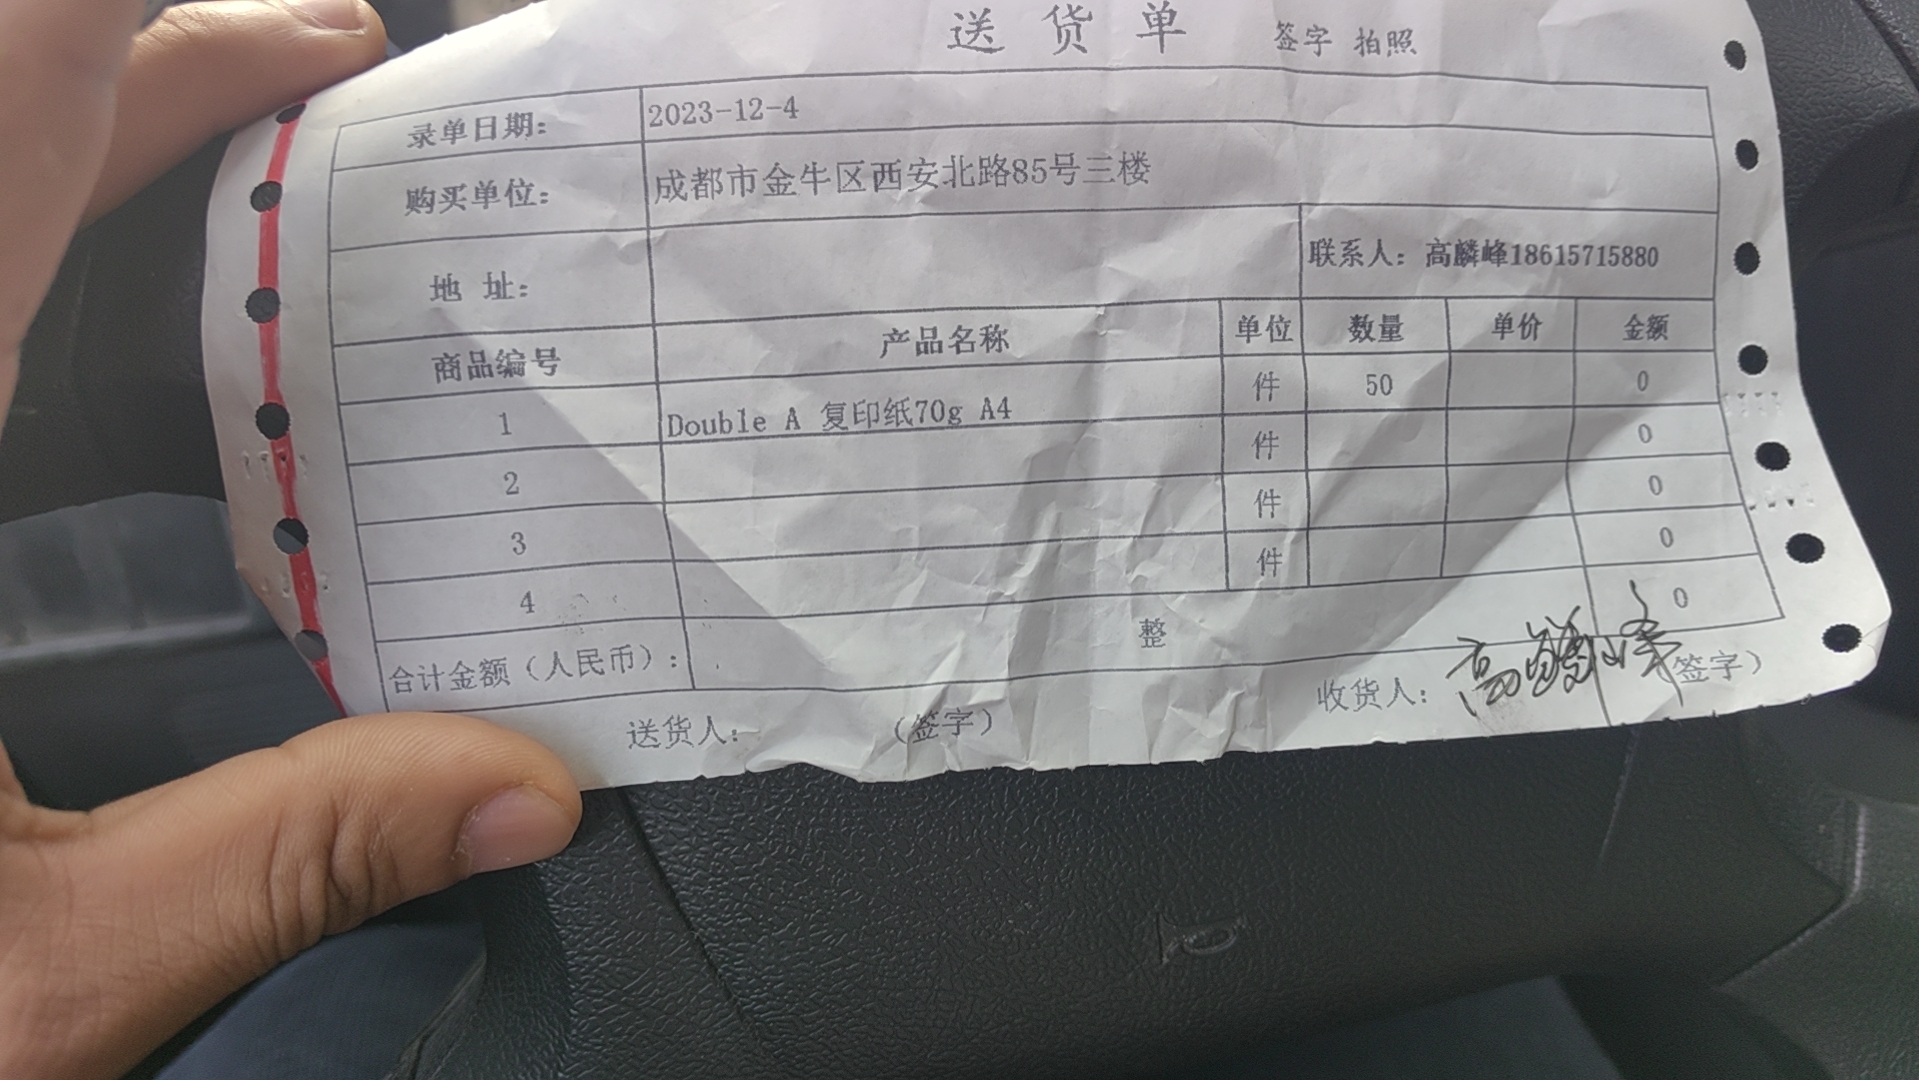 送 货 单 签字 拍照
录单日期： 2023-12-4
购买单位： 成都市金牛区西安北路85号三楼
地 址： 联系人：高麟峰18615715880
商品编号 产品名称 单位 数量 单价 金额
1 Double A 复印纸70g A4 件 50 0
2 件 0
3 件 0
4 件 0
合计金额（人民币）： 整 0
送货人： （签字） 收货人：高麟峰 签字）